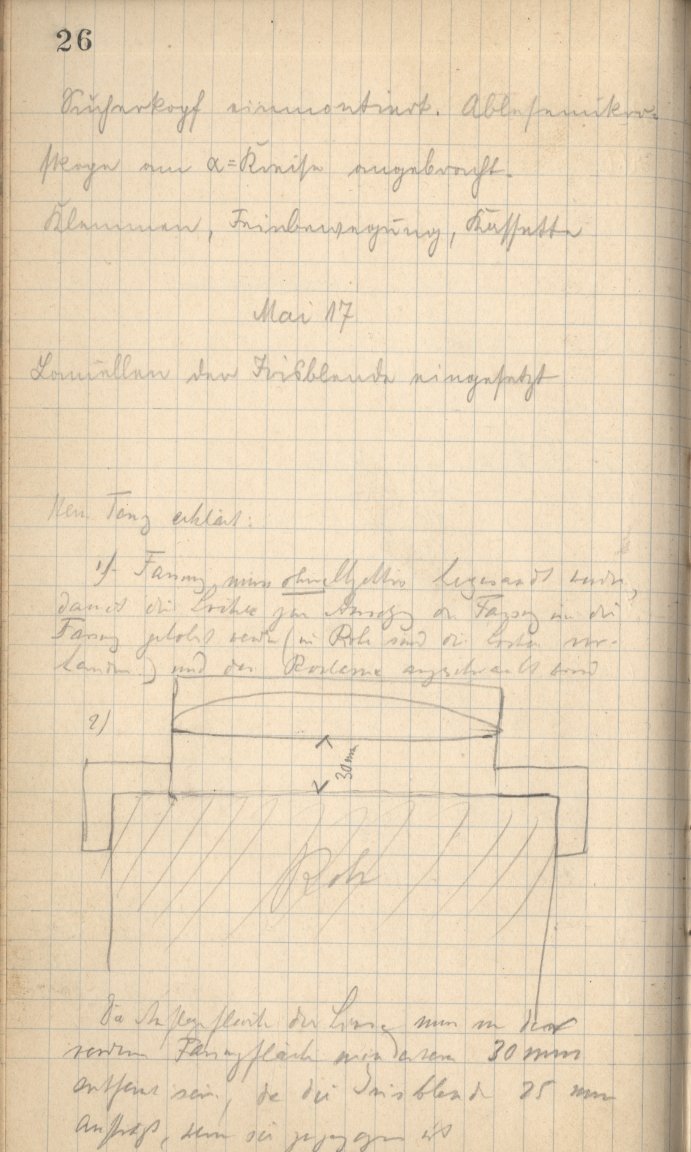 26
Sucherkopf einmontiert. Ablesemikro-
skope am α=Kreise angebracht.
Klemmen, Feinbewegung, Kassette
Mai 17
Lamellen der Irisblende eingesetzt
Herr erklärt:
1) Fassung muss ohne hergesandt werden,
damit die Löcher zur der Fassung in die
Fassung gebohrt werden (im Rohr sind die Löcher vor-
handen) und das angeschraubt wird
2)
30 mm
Rohr
Die der Linse muss von der
vorderen mindestens 30 mm
entfernt sein, da die Irisblende 25 mm
wenn sie ist